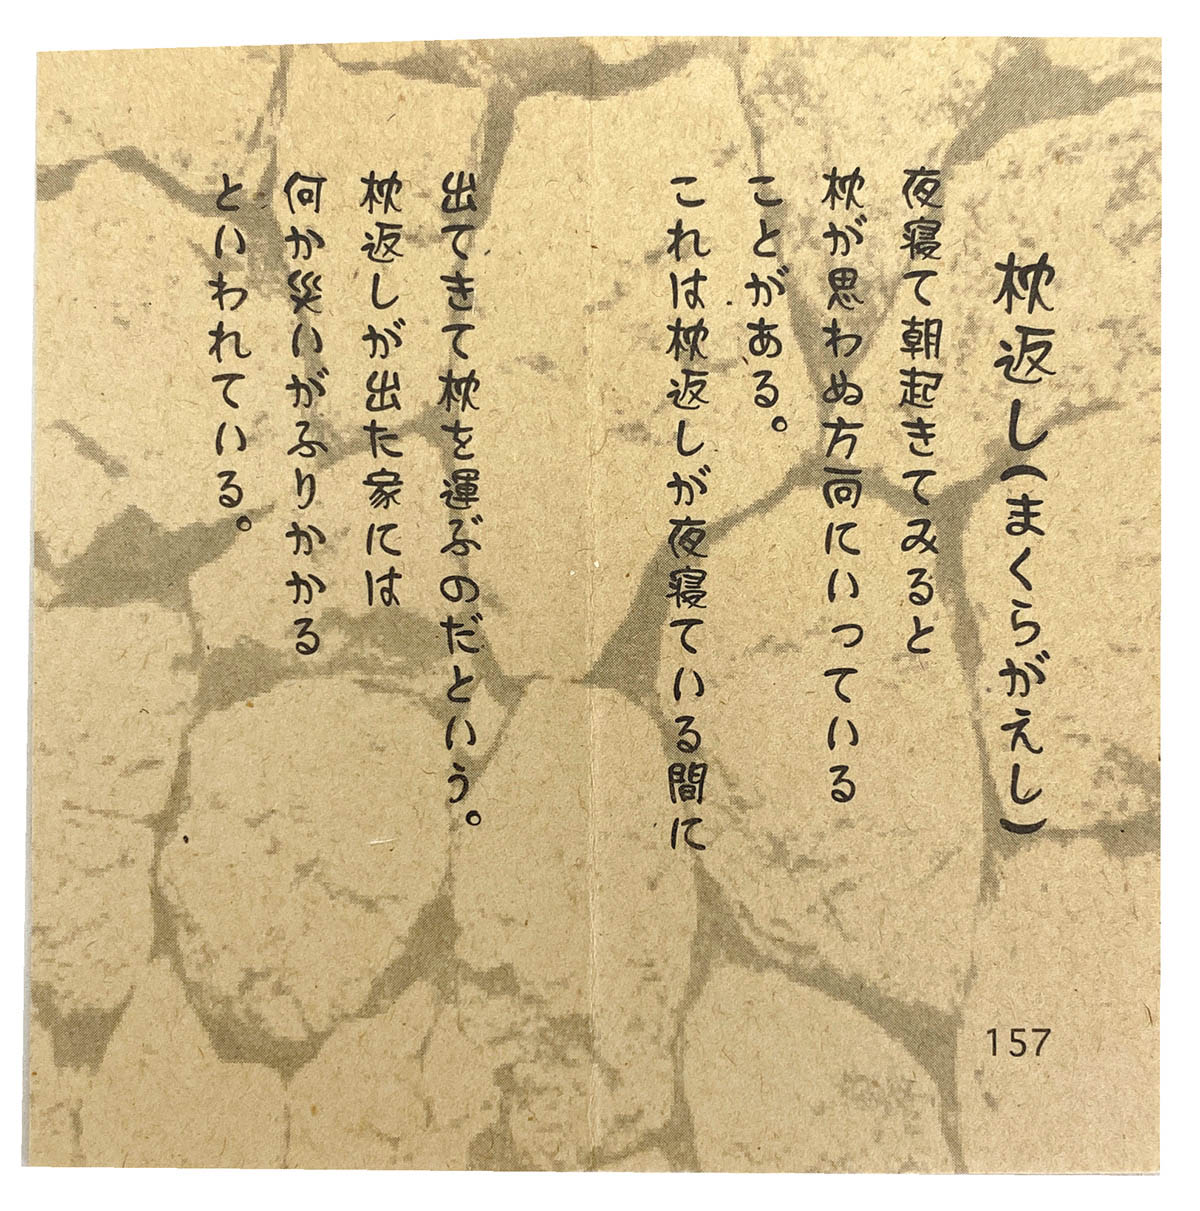 枕返し(まくらがえし)
夜寝て朝起きてみると
枕が思わぬ方向にいっている
ことがある。
これは枕返しが夜寝ている間に
出てきて枕を運ぶのだという。
枕返しが出た家には
何か災いがふりかかる
といわれている。
157